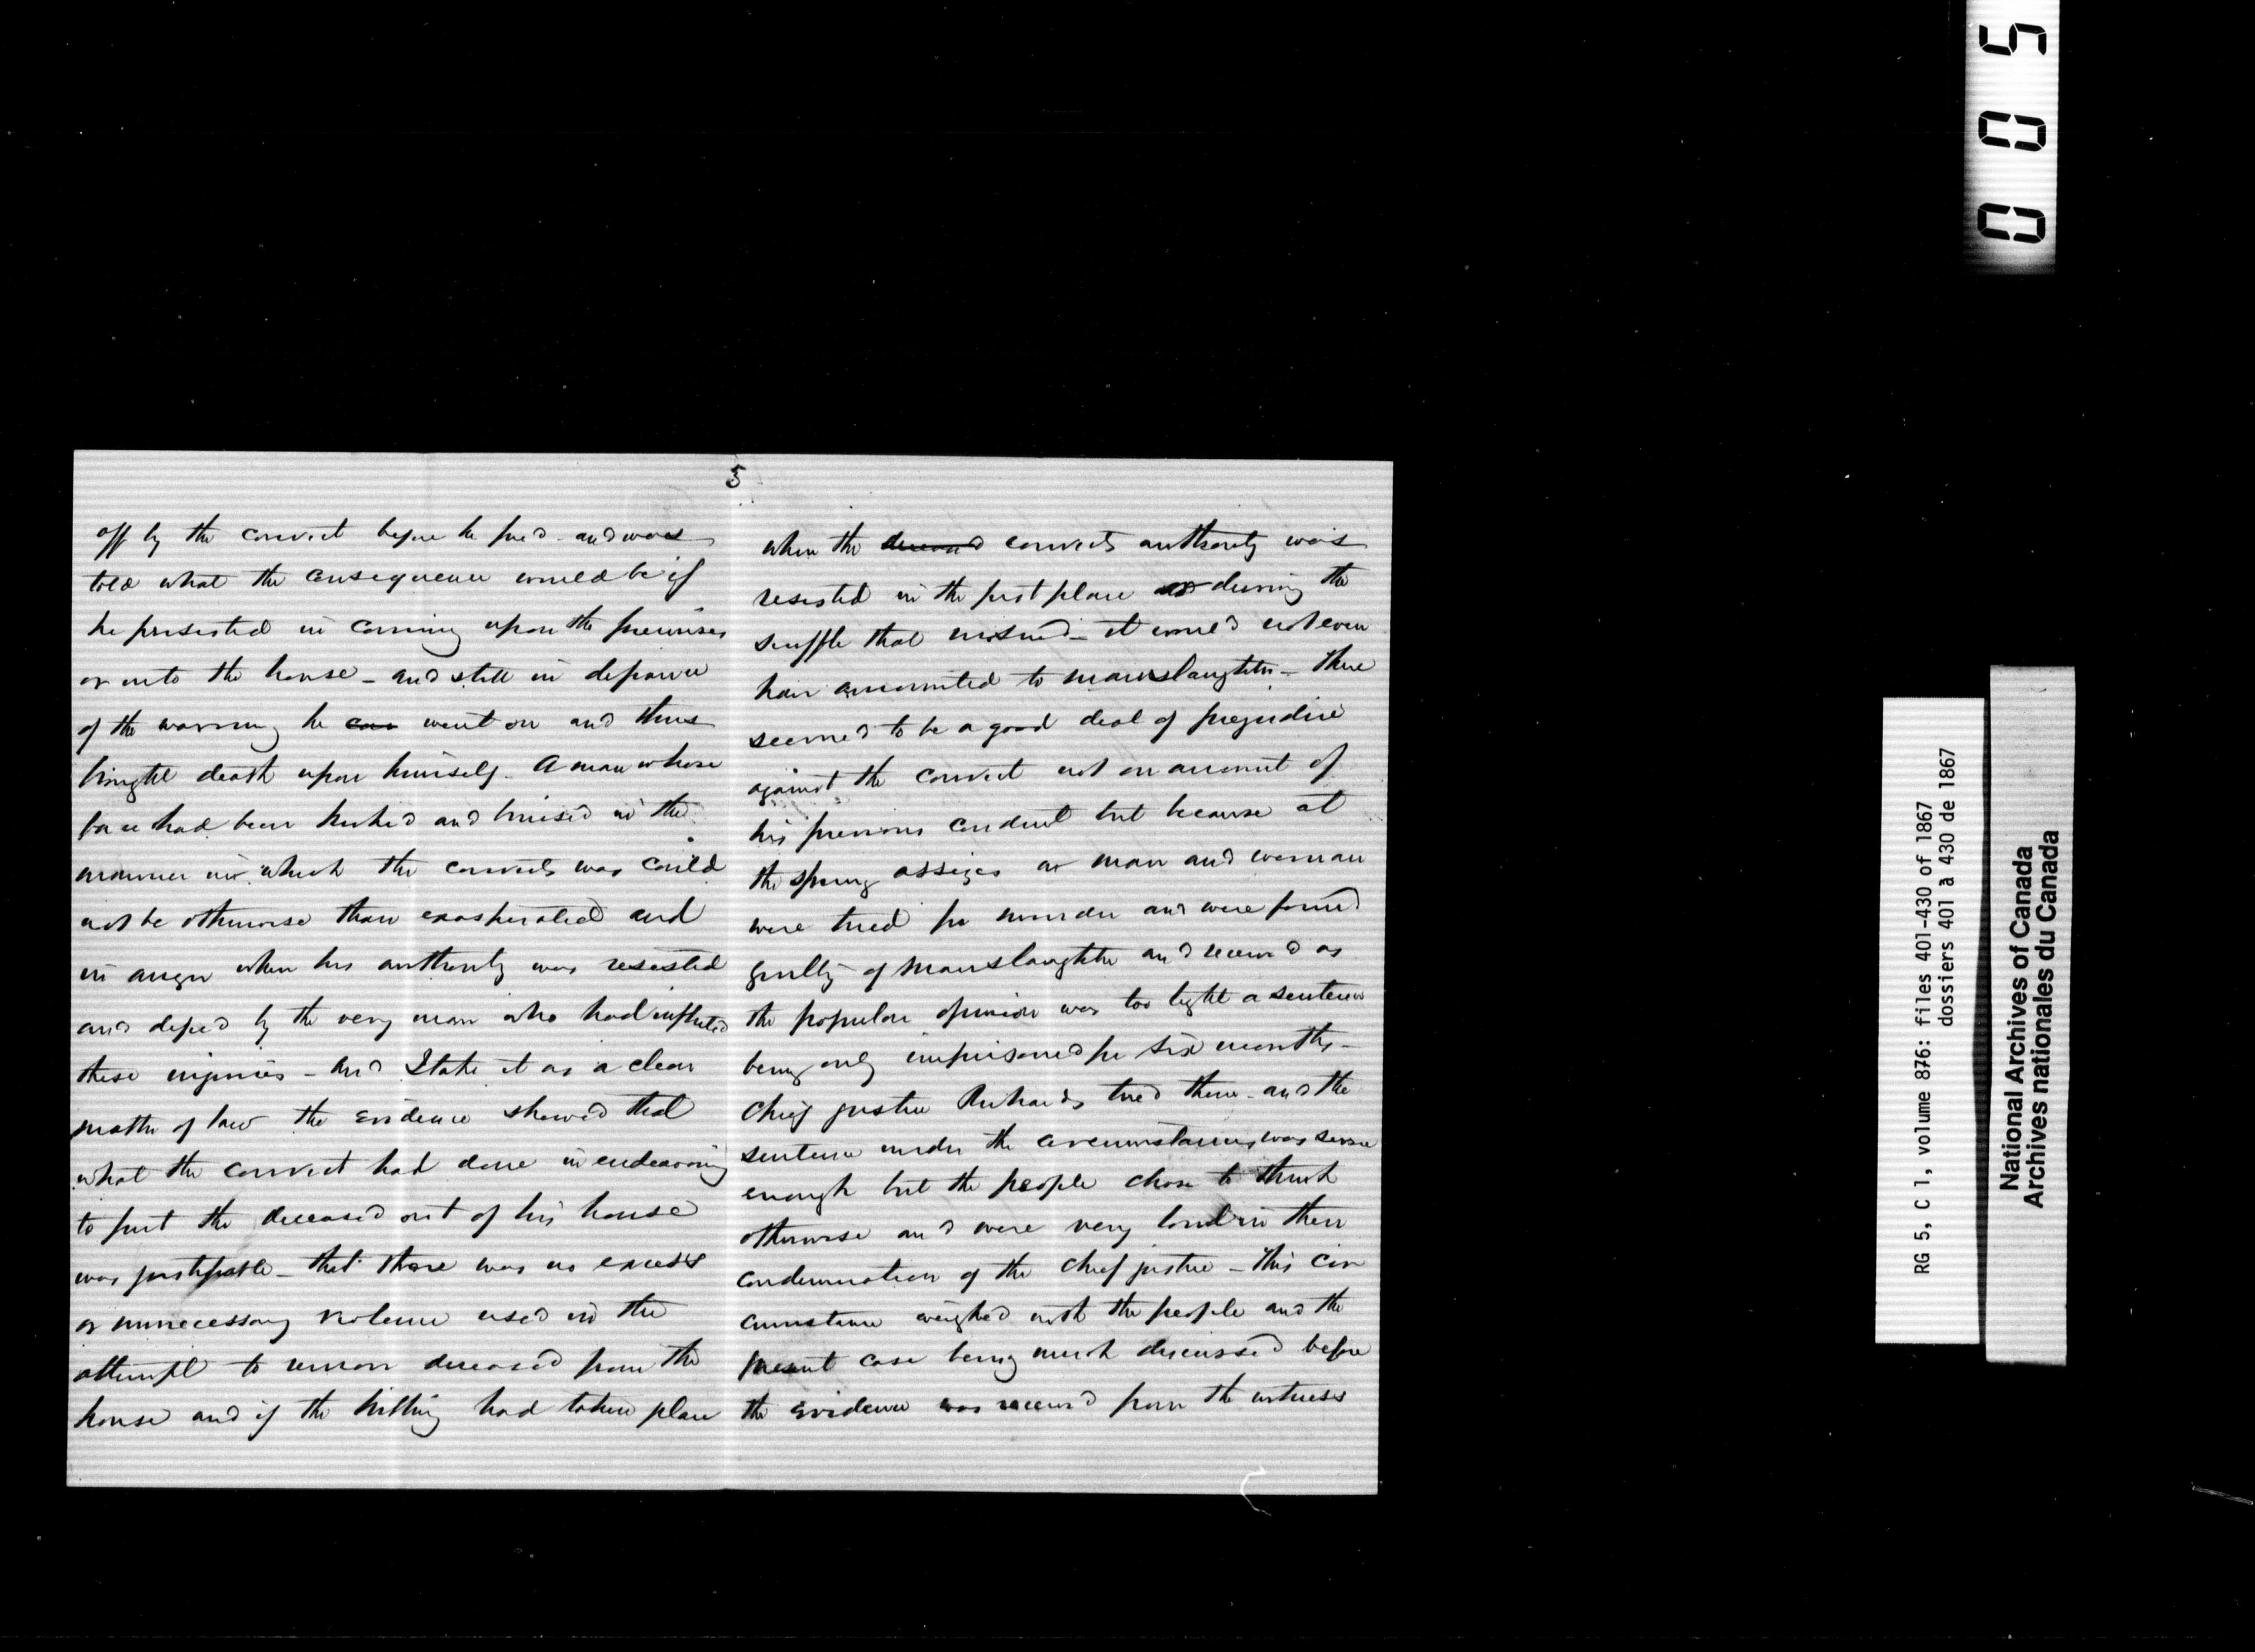 5
off by the convict before he fired - and was
told what the consequence would be if
he persisted in coming upon the premises
or into the house - and still in defiance
of the warning he went on and thus
brought death upon himself. A man whose
face had been kicked and bruised in the
manner in which the convicts was could
not be otherwise than exasperated and
in anger when his authority was resisted
and defied by the very man who had inflicted
these injuries - And I state it as a clear
matter of law the evidence showed that
what the convict had done in endeavoring
to put the deceased out of his house
was justifiable - that there was no excess
or unnecessary violence used in the
attempt to remove deceased from the
house and if the killing had taken place
when the deceased convicts authority was
resisted in the first place or during the
scuffle that ensued - it would not even
have amounted to manslaughter - There
seemed to be a good deal of prejudice
against the convict not on account of
his previous conduct but because at
the spring assizes a man and woman
were tried for murder and were found
guilty of manslaughter and received as
the popular opinion was too light a sentence
being only imprisoned for six months -
Chief Justice Richards tried them - and the
sentence under the circumstances was severe
enough but the people chose to think
otherwise and were very loud in their
condemnation of the chief justice - This cir
cumstance weighed with the people and the
present case being much discussed before
the evidence was received from the witnesses
0 0 5
RG 5, C 1, volume 876: files 401-430 of 1867
dossiers 401 à 430 de 1867
National Archives of Canada
Archives nationales du Canada